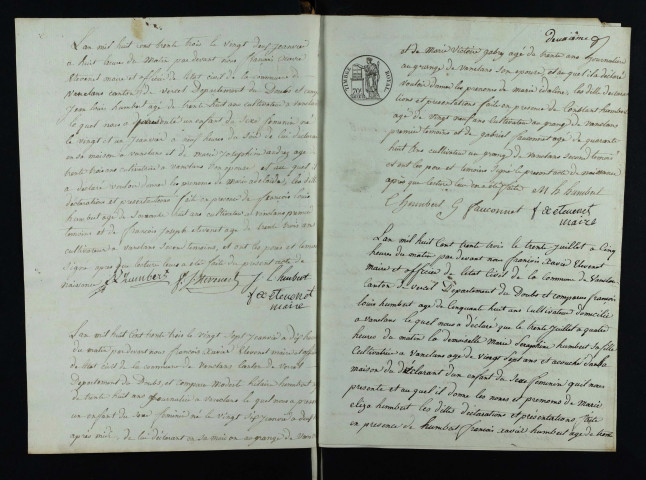 L'an mil huit cent trente trois le vingt deux janvier
à huit heures du matin par devant nous françois xavier
Etevenot maire et officier de l'état civil de la commune de
vanclans canton de vercel Département du Doubs est comparu
jean louis humbert agé de trente huit ans cultivateur à vanclans
lequel nous a présenté un enfant du sexe féminin né
le vingt et un janvier à neuf heures du soir de lui declarant
en sa maison à vanclans et de marie josephine agé
trente trois ans cultivatrice à vanclans son epouse et au quel il
a declaré vouloir donner les prenoms de marie adelaide les dites
declarations et présentations fait en présence de françois louis
humbert agé de soixante huit ans cultivateur à vanclans premier
temoins et de françois joseph agé de trente trois ans
cultivateur à vanclans second temoins, et ont les père et temoins
signé après que lecture leur a été faite du présent acte de
naissance
J L humbert
f x etevenot
maire
L'an mil huit cent trente trois le vingt sept janvier à dix heures
du matin par devant nous françois xavier Etevenot maire et officier
de l'état civil de la commune de vanclans canton de vercel
departement du Doubs, est comparu modeste hilaire humbert agé
de trente huit ans à vanclans lequel nous a présenté
un enfant du sexe féminin né le vingt sept janvier à
après midi, de lui déclarant en sa maison au grange de vanclans
deuxième
TIMBRE ROYAL
et de marie victoire agé de trente ans journalière
au grange de vanclans son epouse, et au quel il a déclaré
vouloir donner les prenoms de marie les dites declarations
et présentations faite en présence de constant humbert
agé de vingt neuf ans cultivateur au grange de vanclans
premier temoins et de gabriel fauconnet agé de quarante
huit ans cultivateur au grange de vanclans second temoins
et ont les père et temoins signé le présent acte de naissance
après que lecture leur en a été faite M h humbert
C humbert G fauconnet f x etevenot
maire
L'an mil huit cent trente trois le trente juillet à cinq
heures du matin par devant nous françois xavier Etevenot
maire et officier de l'état civil de la commune de vanclans
canton de vercel Département du Doubs est comparu françois
louis humbert agé de cinquante huit ans cultivateur domicilié
à vanclans le quel nous a déclaré que le trente juillet à quatre
heures du matin la demoiselle marie josephine humbert sa fille
cultivatrice à vanclans agé de vingt sept ans est accouché dans la
maison du déclarant d'un enfant du sexe féminin qu'il nous
présente et au quel il donne les noms et prenoms de marie
eliza humbert les dites déclarations et présentations faite
en présence de humbert françois xavier humbert agé de trente